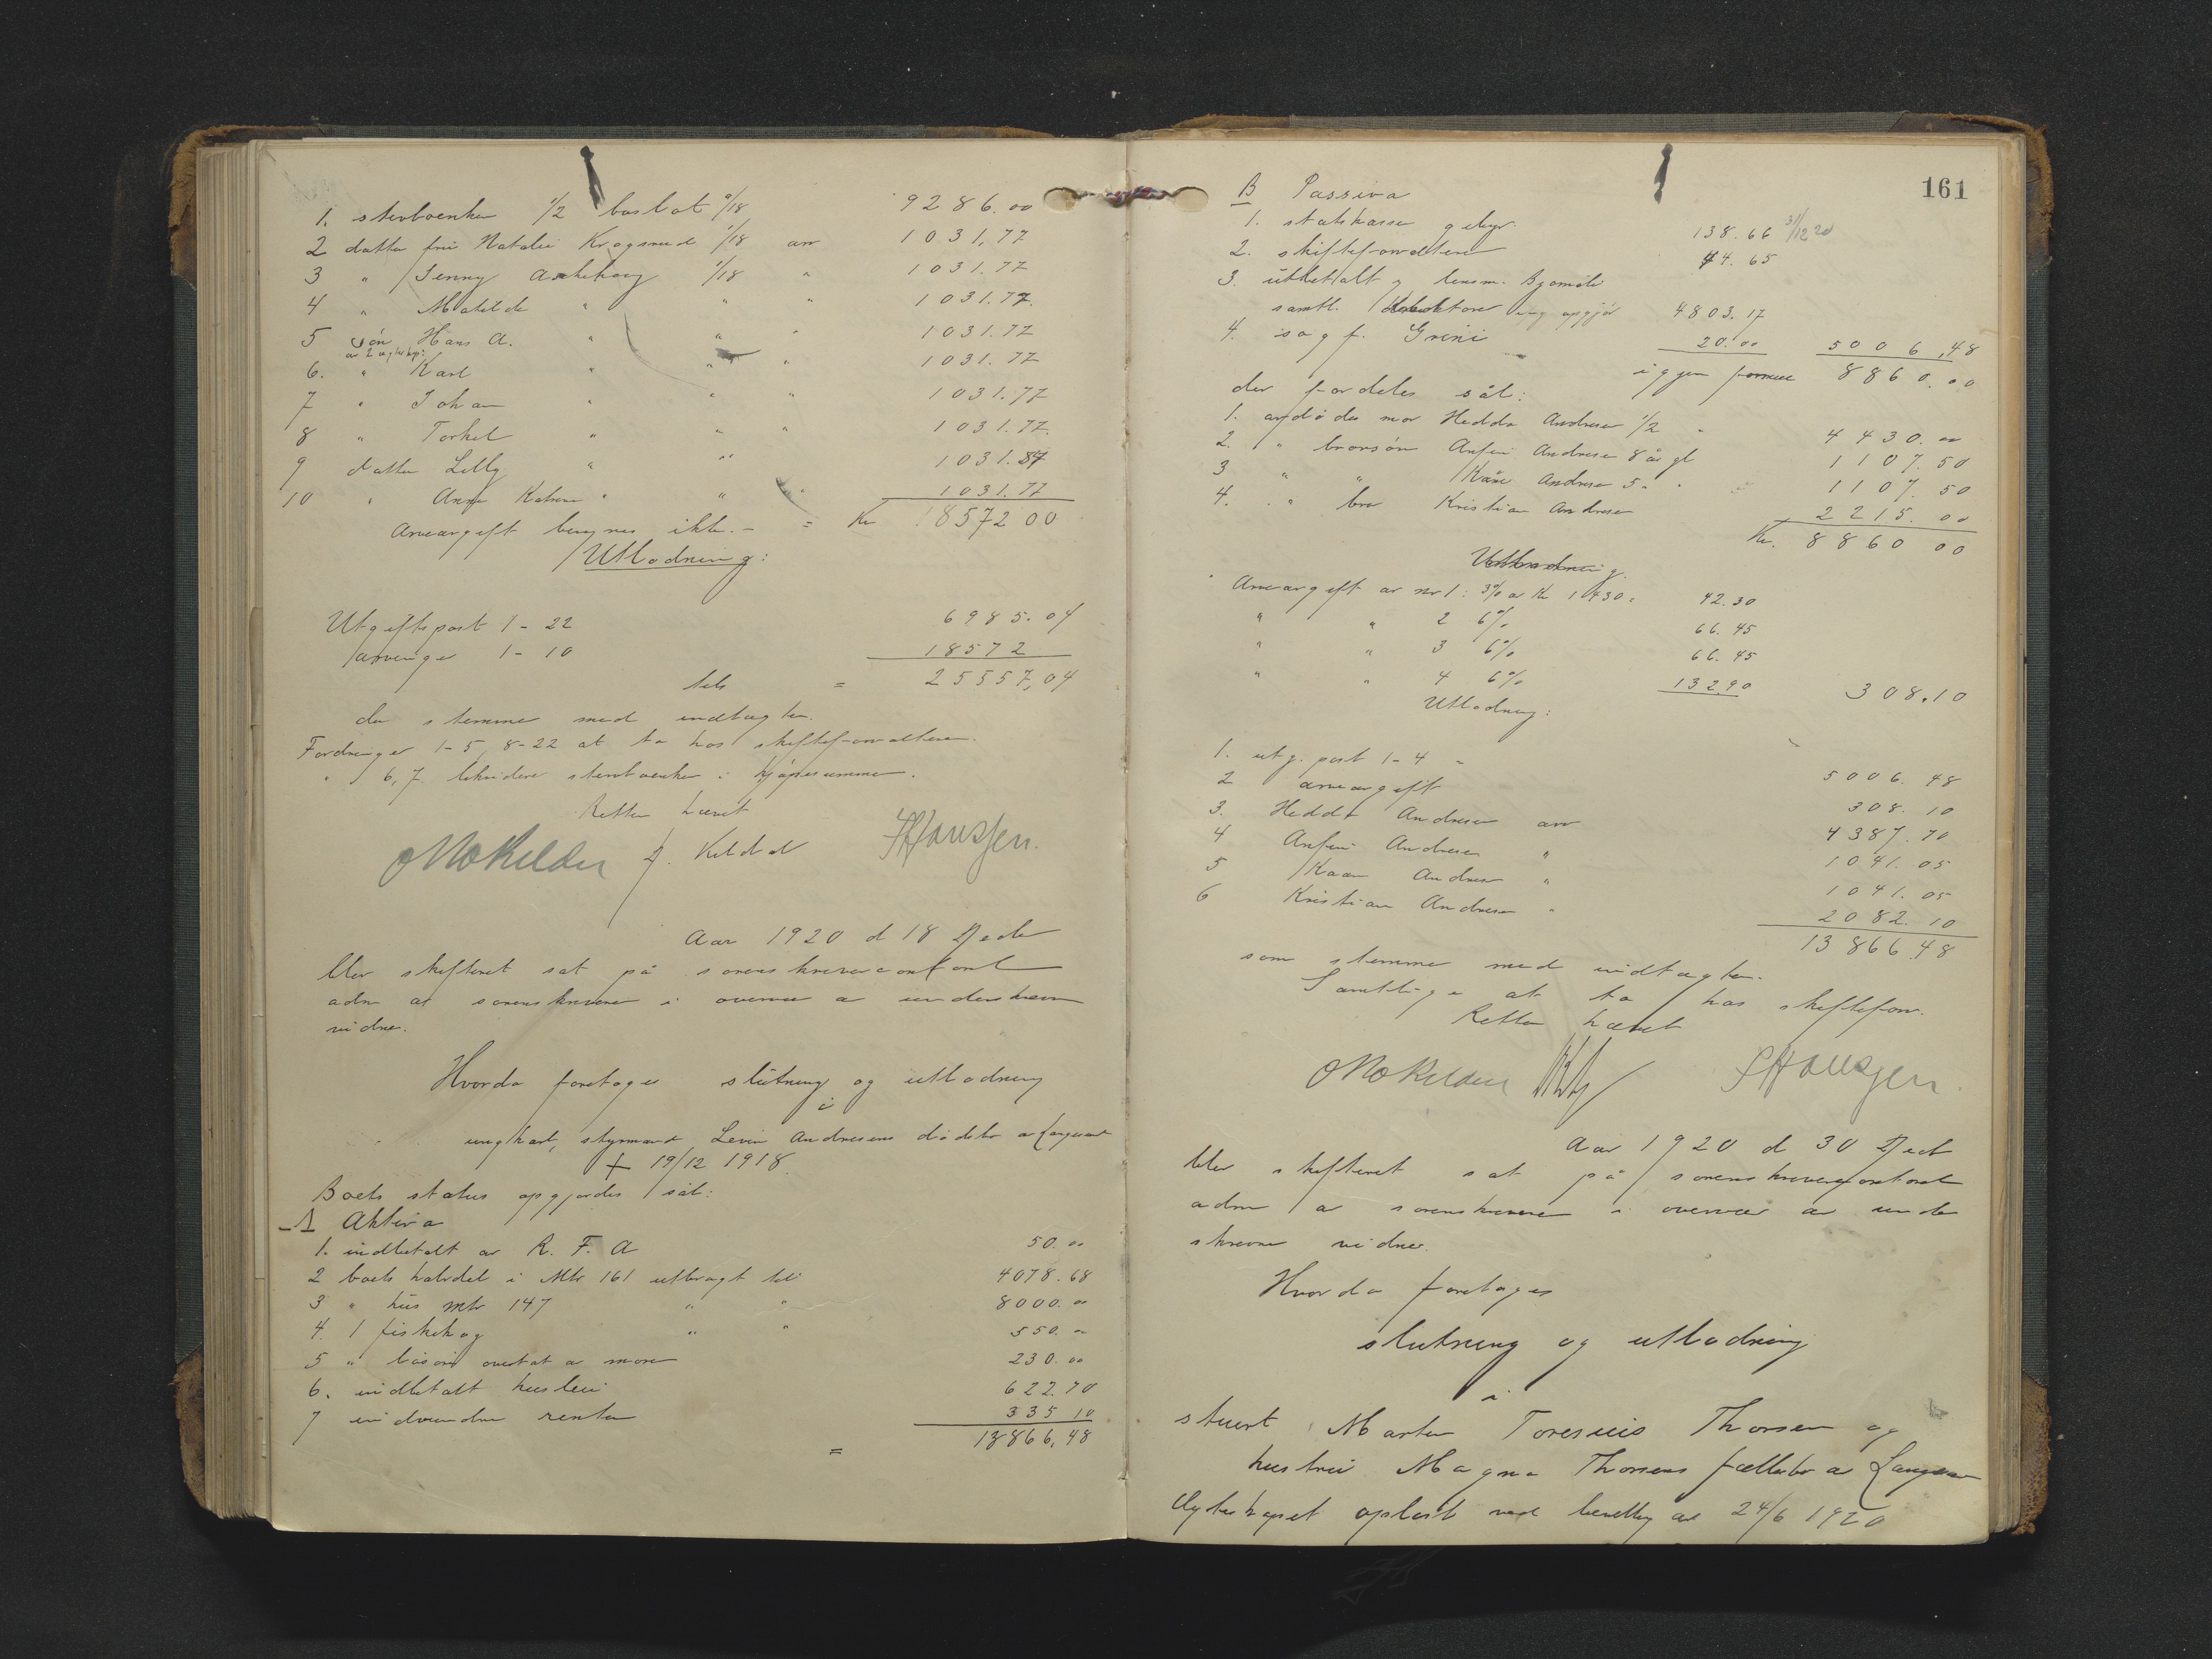 1. stervboenken 1/2 boslot 9/18 9286.00
2 datter fru Natalie Krogsrud 1/18 arv 1031,77
3 " Jenny 1/18 " 1031.77
4 " Matilde " " " 1031.77.
5 søn Hans A. " " " 1031.77
av 2 egteskap:
6. " Karl " " " 1031.77
7 " Johan " " " 1031.77
8 " Torkel " " " 1031.77.
9 datter Lilly " " 1031.87
10 " Anne Katrine " " 1031.77
Arveavgift beregnes ikke. - = Kr 18572 00
Utlodning:
Utgiftspost 1 - 22 6985.04
arvinger 1 - 10 18572
tils = 25557,04
der stemmer med indtægten.
Fordringer 1-5, 8-22 at ta hos skifteforvalteren.
" 6, 7. likvidere stervboenken i kjøpesummen.
Retten hævet
HHanssen.
Aar 1920 d 18 Decbr
blev skifteret sat på sorenskriverkontoret
adm av sorenskriveren i overvær av underskrevne
vidner.
Hvorda foretages slutning og utlodning
i
ungkarl, styrmand Levin Andresens dødsbo av Langesund
+ 19/12 1918.
Boets status opgjordes sål:
A Aktiva
1. indbetalt av R. F. A 50.00
2 boets halvdel i Mtr 161 utbragt til 4078.68
3 " hus mtr 147 " " 8000.00
4. 1 fiskekog " " 550.00
5 " løsøre overtat av moren 230.00
6. indbetalt husleie 622.70
7 indvundne renter 335 10
= 13866,48
161
B Passiva
1. statskassen gebyr 138.66 31/12 20
2. skifteforvalteren 44.65
3. utbetalt av lensm.
samtl. opgjør 4803.17
4. sagf. Grini 20.00 5006,48
igjen 8860.00
der fordeles sål:
1. avdødes mor Hedda Andresen 1/2 " 4430.00
2. " brorsøn Anfin Andresen 8 år gl 1107.50
3 " " Kåre Andresen 5 " " 1107.50
4. " bror Kristian Andresen 2215.00
Kr. 8860 00
Utlodning.
Arveavgift av nr 1: 3% av Kr 1430. 42.30
" " 2 6% 66.45
" " 3 6% 66.45
" " 4 6% 132,90 308.10
Utlodning:
1. utg. post 1-4 " 5006.48
2 arveavgift 308.10
3. Hedda Andresen arv 4387.70
4 Anfin Andresen " 1041.05
5 Kaare Andresen " 1041.05
6 Kristian Andresen " 2082.10
13866.48
som stemmer med indtægten.
Samtlige at ta hos skifteforv.
Retten hævet
HHanssen.
Aar 1920 d 30 Decbr
blev skifteret sat på sorenskriverkontoret
adm av sorenskriveren i overvær av under
skrevne vidner.
Hvorda foretages
slutning og utlodning
i
stuert Marten Toresius Thorsen og
hustru Magna Thorsens fællesbo av Langesund
Egteskapet opløst ved bevilling av 24/6 1920